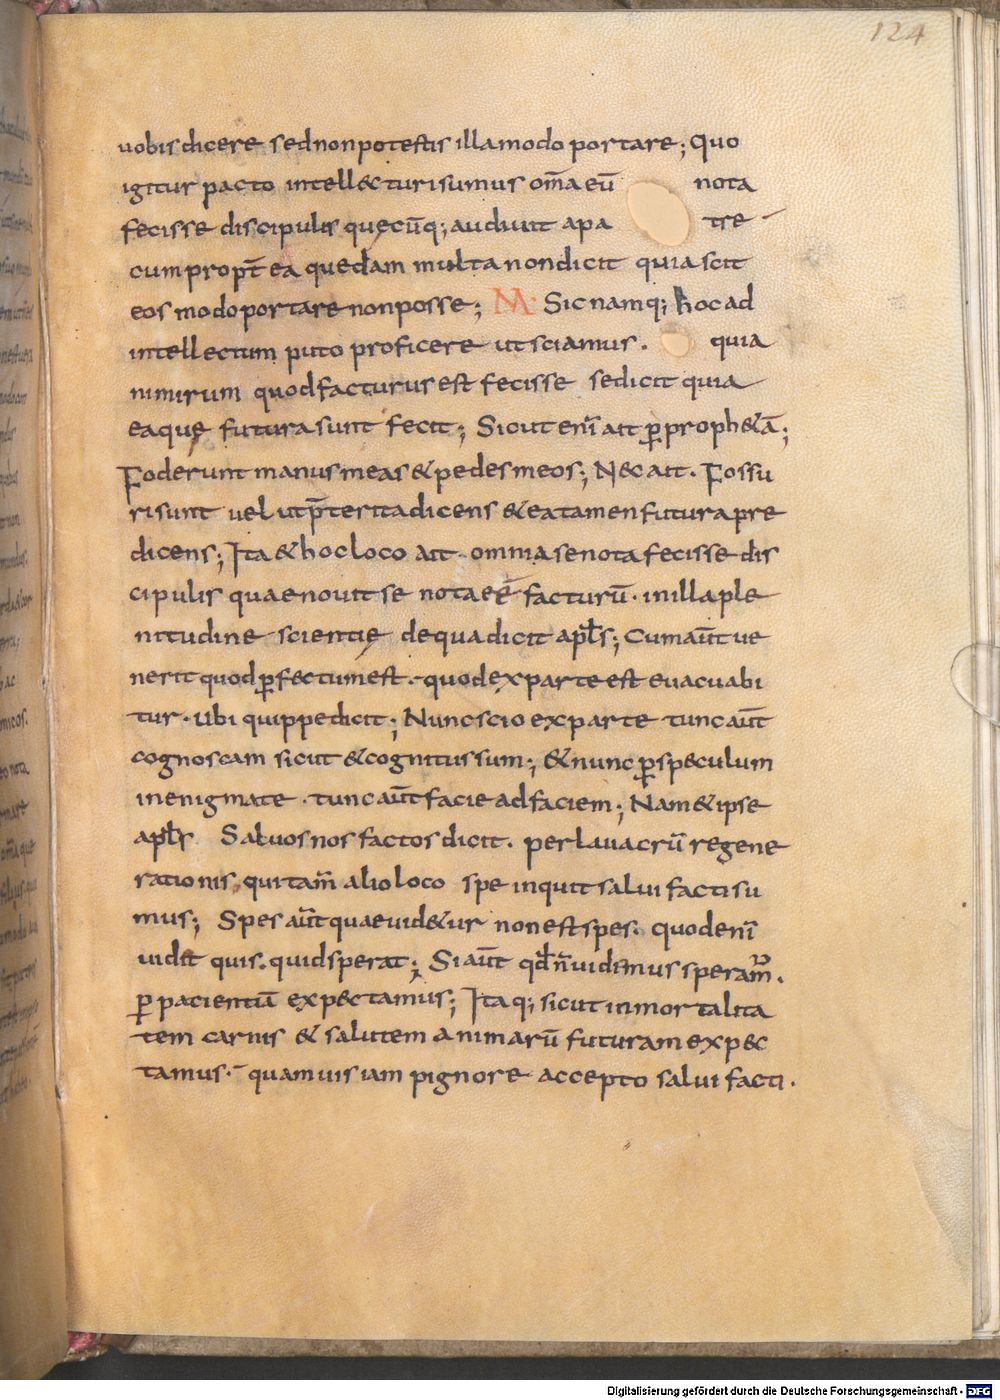 124
uobis dicere sed non potestis illa modo portare; Quo
igitur pacto intellecturi sumus om̅a eu̅ nota
fecisse discipulis quęcu̅q; audiuit a pa tre
cum propt̅ ea quędam multa non dicit quia scit
eos modo portare non posse; M· Sic namq; hoc ad
intellectum puto proficere ut sciamus . quia
nimirum quod facturus est fecisse se dicit quia
ea quę futura sunt fecit; Sicut eni̅ ait ꝑ proph&a̅;
Foderunt manus meas & pedes meos; Nec ait . Fossu
ri sunt uel ut p̅terita dicens & ea tamen futura pre
dicens; Ita & hoc loco ait . omnia se nota fecisse dis
cipulis quae nouit se nota ee̅ facturu̅ . in illa ple
nitudine scientię de qua dicit apl̅s; Cum au̅t ue
nerit quod ꝑfectum est . quod ex parte est euacuabi
tur . ubi quippe dicit; Nunc scio ex parte tunc au̅t
cognoscam sicut & cognitus sum; & nunc ꝑ speculum
in enigmate . tunc au̅t facie ad faciem; Nam & ipse
apl̅s Saluos nos factos dicit . per lauacru̅ regene
rationis, qui tam̅ alio loco spe inquit salui facti su
mus; Spes au̅t quae uid&ur non est spes . quod eni̅
uidit quis . quid sperat; Si au̅t qd̅ n̅ uidimus speram᷒ .
ꝑ pacientia̅ expectamus; Itaq; sicut inmortalita
tem carnis & salutem animaru̅ futuram expec
tamus . quamuis iam pignore accepto salui facti .
Digitalisierung gefördert durch die Deutsche Forschungsgemeinschaft - DFG